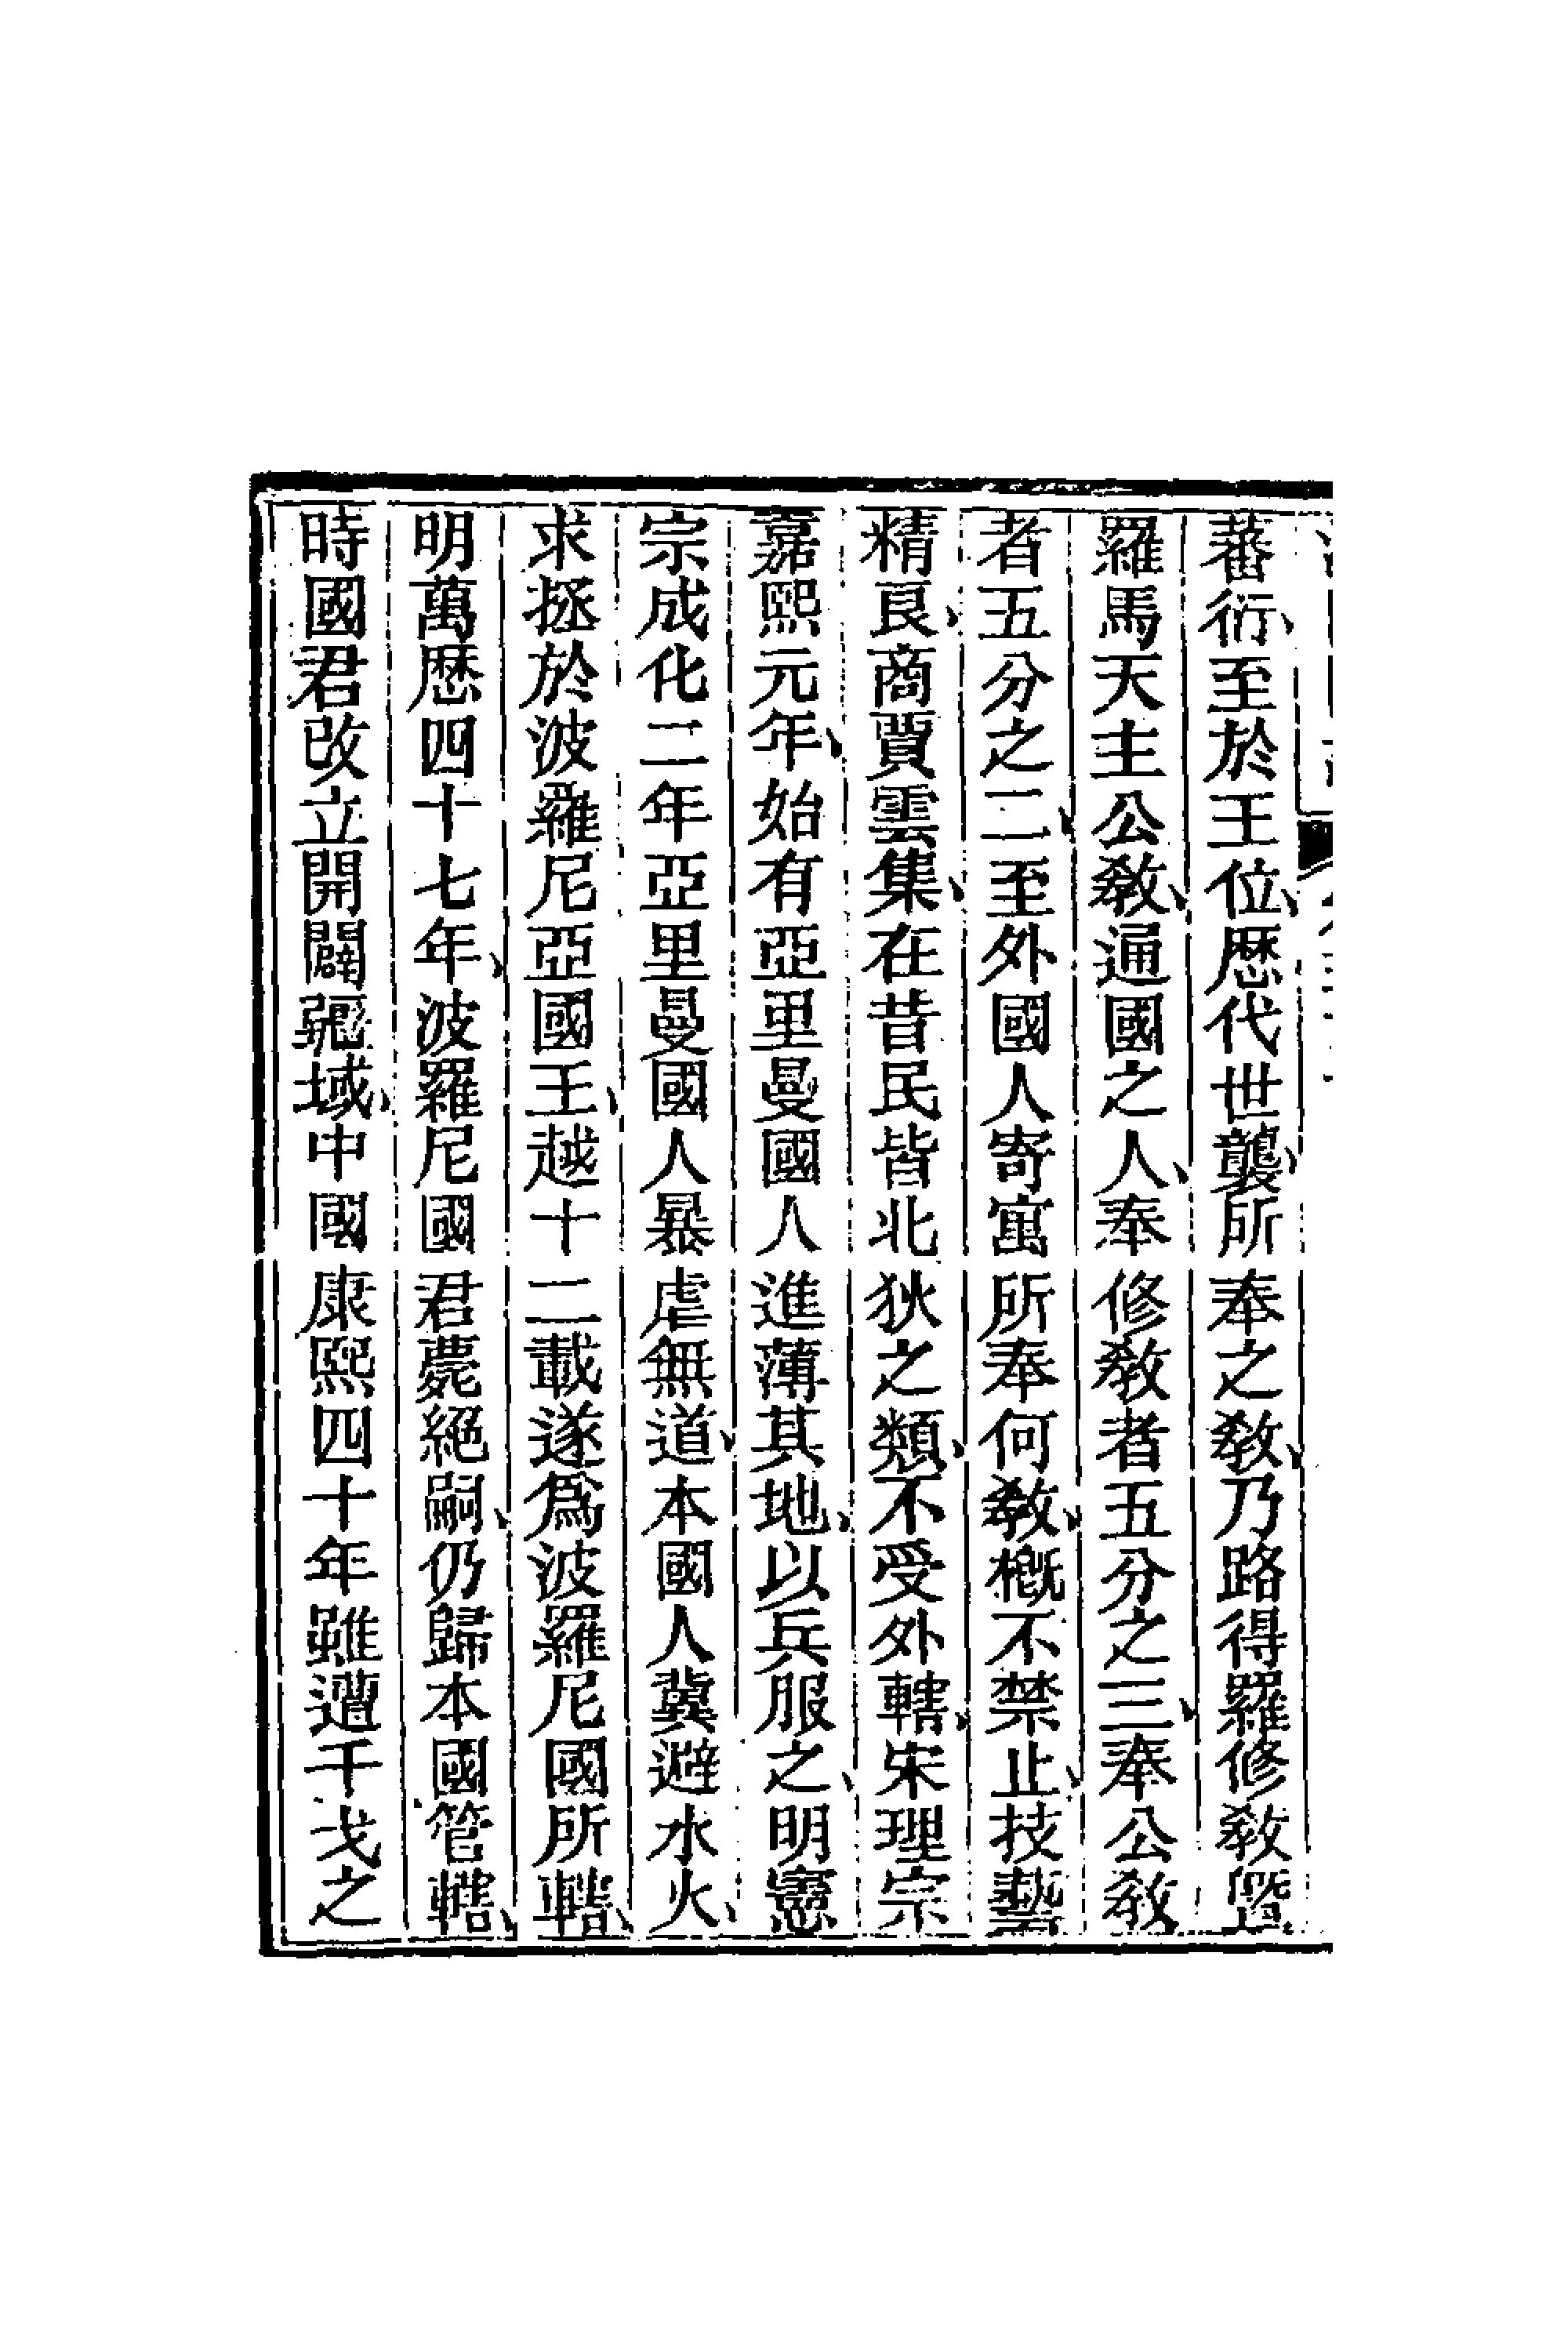 蕃衍、至於王位、歷代世襲、所奉之教、乃路得羅修教曁
羅馬天主公教、通國之人、奉修教者五分之三、奉公教
者五分之二、至外國人寄寓所奉何教、槪不禁止、技藝
精良、商賈雲集、在昔民皆北狄之類、不受外轄、宋理宗
嘉熙元年、始有亞里曼國人進薄其地、以兵服之、明憲
宗成化二年亞里曼國人暴虐無道、本國人冀避水火、
求拯於波羅尼亞國王、越十二載遂爲波羅尼國所轄、
明萬歷四十七年、波羅尼國君薨絕嗣、仍歸本國管轄、
時國君改立開闢疆域、中國康熙四十年雖遭干戈之